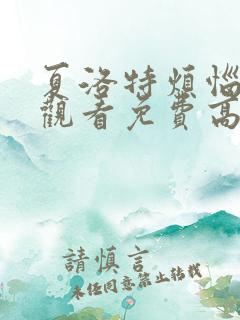 夏洛特煩惱
觀看免費高
請慎言
未經同意禁止轉載